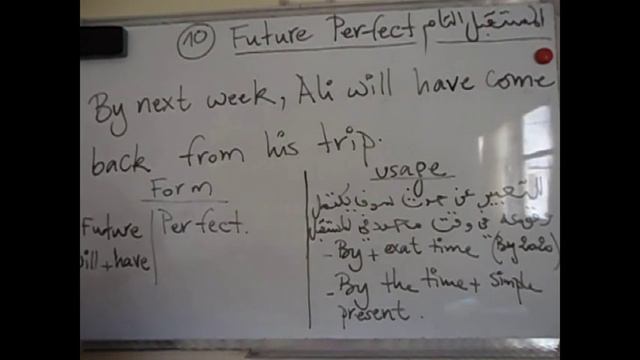 10 Future Perfect المستقبل التام
By next week, Ali will have come
back from his trip.
Form
Future Perfect.
will + have
usage
للتعبير عن حدث سوف يكتمل
وقوعه في وقت محدد في المستقبل
- By + exat time (By 2020)
- By the time + simple
present.